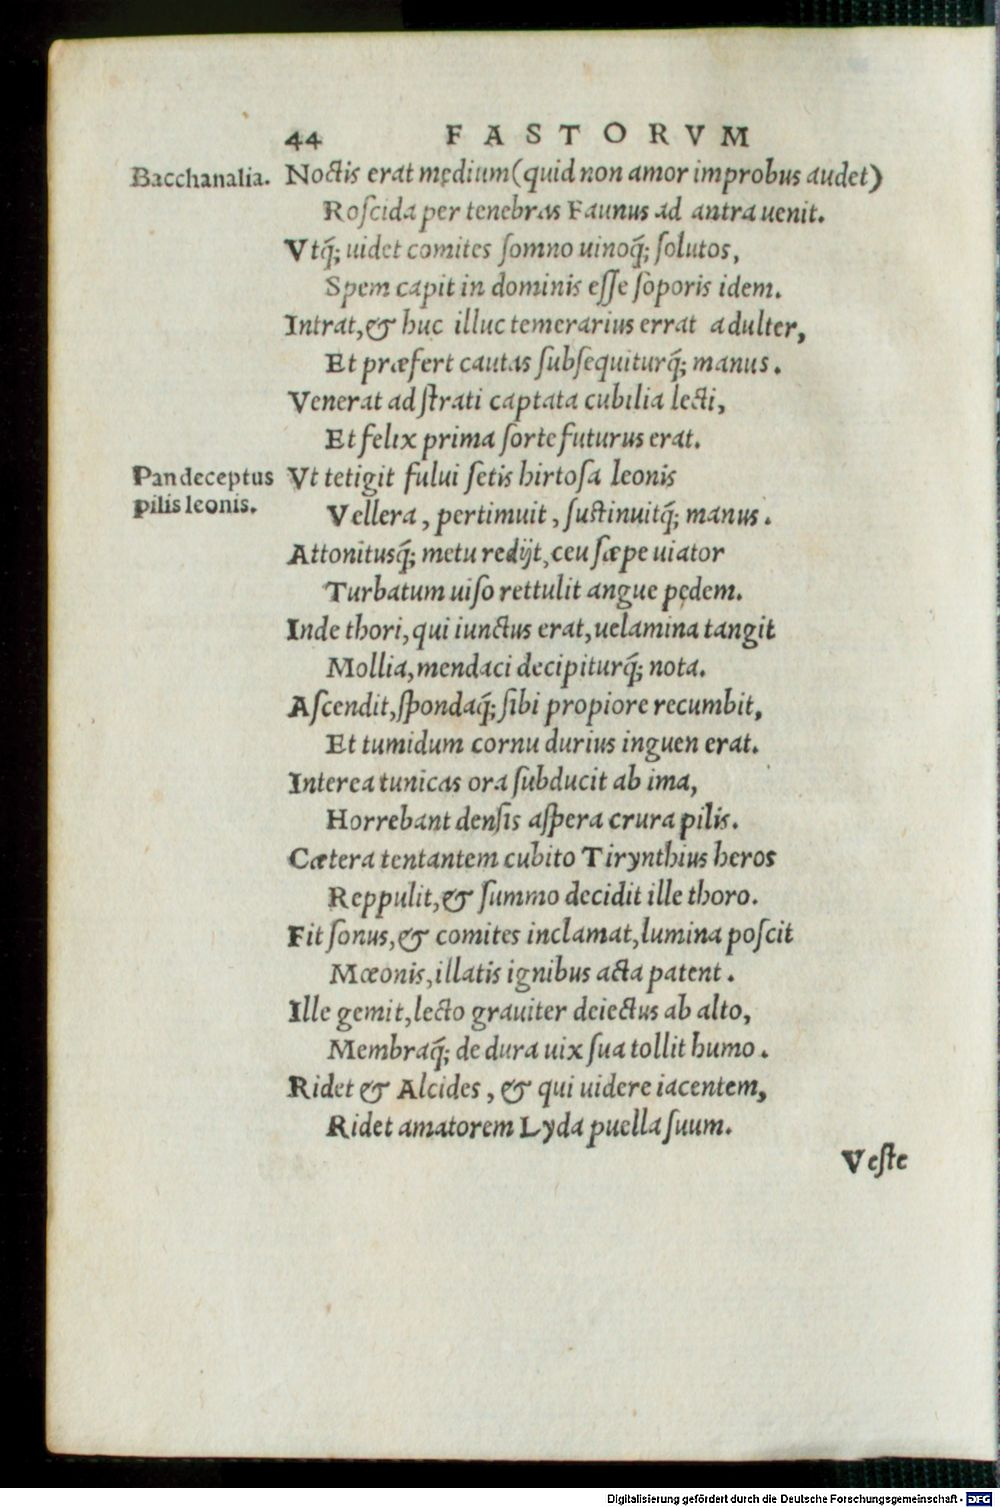 44 FASTORVM
Bacchanalia. Noctis erat mędium (quid non amor improbus audet)
Roſcida per tenebras Faunus ad antra uenit.
Vtq́; uidet comites ſomno uinoq́; ſolutos,
Spem capit in dominis eſſe ſoporis idem.
Intrat, & huc illuc temerarius errat adulter,
Et præfert cautas ſubſequiturq́; manus.
Venerat ad ſtrati captata cubilia lecti,
Et felix prima ſorte futurus erat.
Pan deceptus Vt tetigit fului ſetis hirtoſa leonis
pilis leonis. Vellera, pertimuit, ſuſtinuitq́; manus.
Attonitusq́; metu redijt, ceu ſæpe uiator
Turbatum uiſo rettulit angue pędem.
Inde thori, qui iunctus erat, uelamina tangit
Mollia, mendaci decipiturq́; nota.
Aſcendit, ſpondaq́; ſibi propiore recumbit,
Et tumidum cornu durius inguen erat.
Interea tunicas ora ſubducit ab ima,
Horrebant denſis aſpera crura pilis.
Cætera tentantem cubito Tirynthius heros
Reppulit, & ſummo decidit ille thoro.
Fit ſonus, & comites inclamat, lumina poſcit
Mœonis, illatis ignibus acta patent.
Ille gemit, lecto grauiter deiectus ab alto,
Membraq́; de dura uix ſua tollit humo.
Ridet & Alcides, & qui uidere iacentem,
Ridet amatorem Lyda puella ſuum.
Veſte
Digitalisierung gefördert durch die Deutsche Forschungsgemeinschaft - DFG